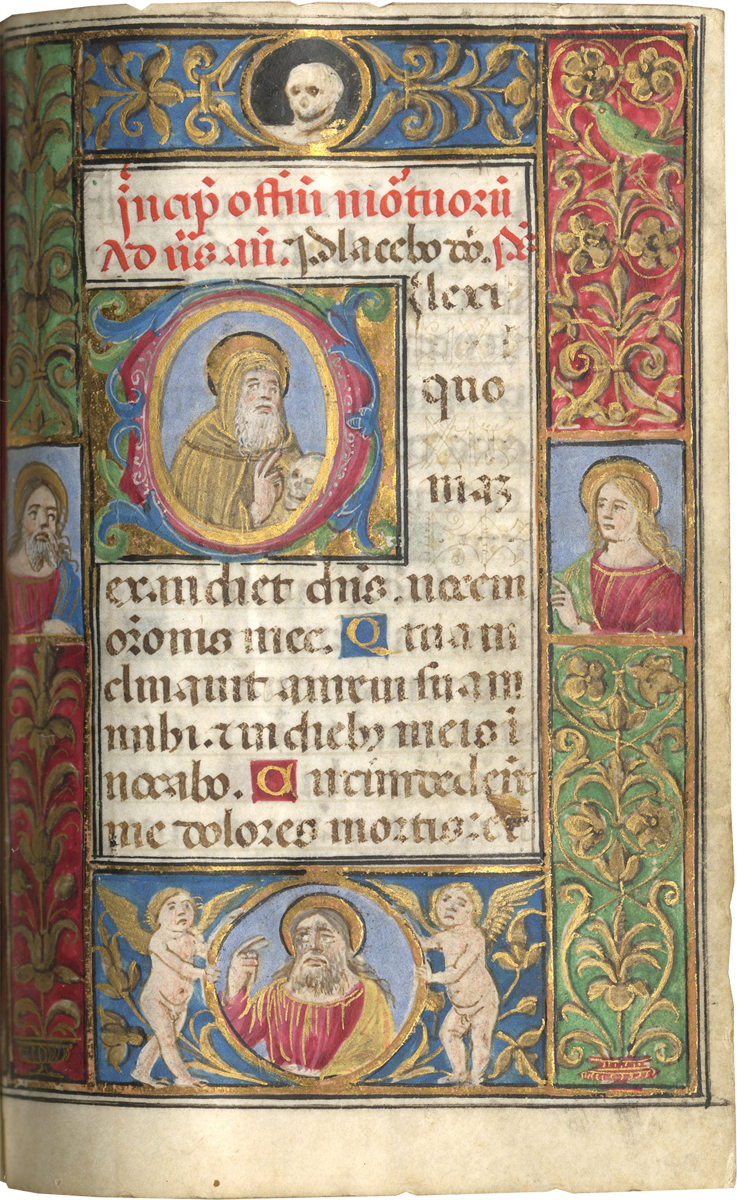 Incip̃ offiũ mõtuorũ
Ad ũs. añ. Placebo dõ. p̃s
Dilexi
quo
niaȝ
exaudiet dñs. uocem
orõnis mee. Quia in
clinauit aurem suam
mihi. ⁊ in diebꝰ meis ĩ
uocabo. Circũdederũt
me dolores mortis: et